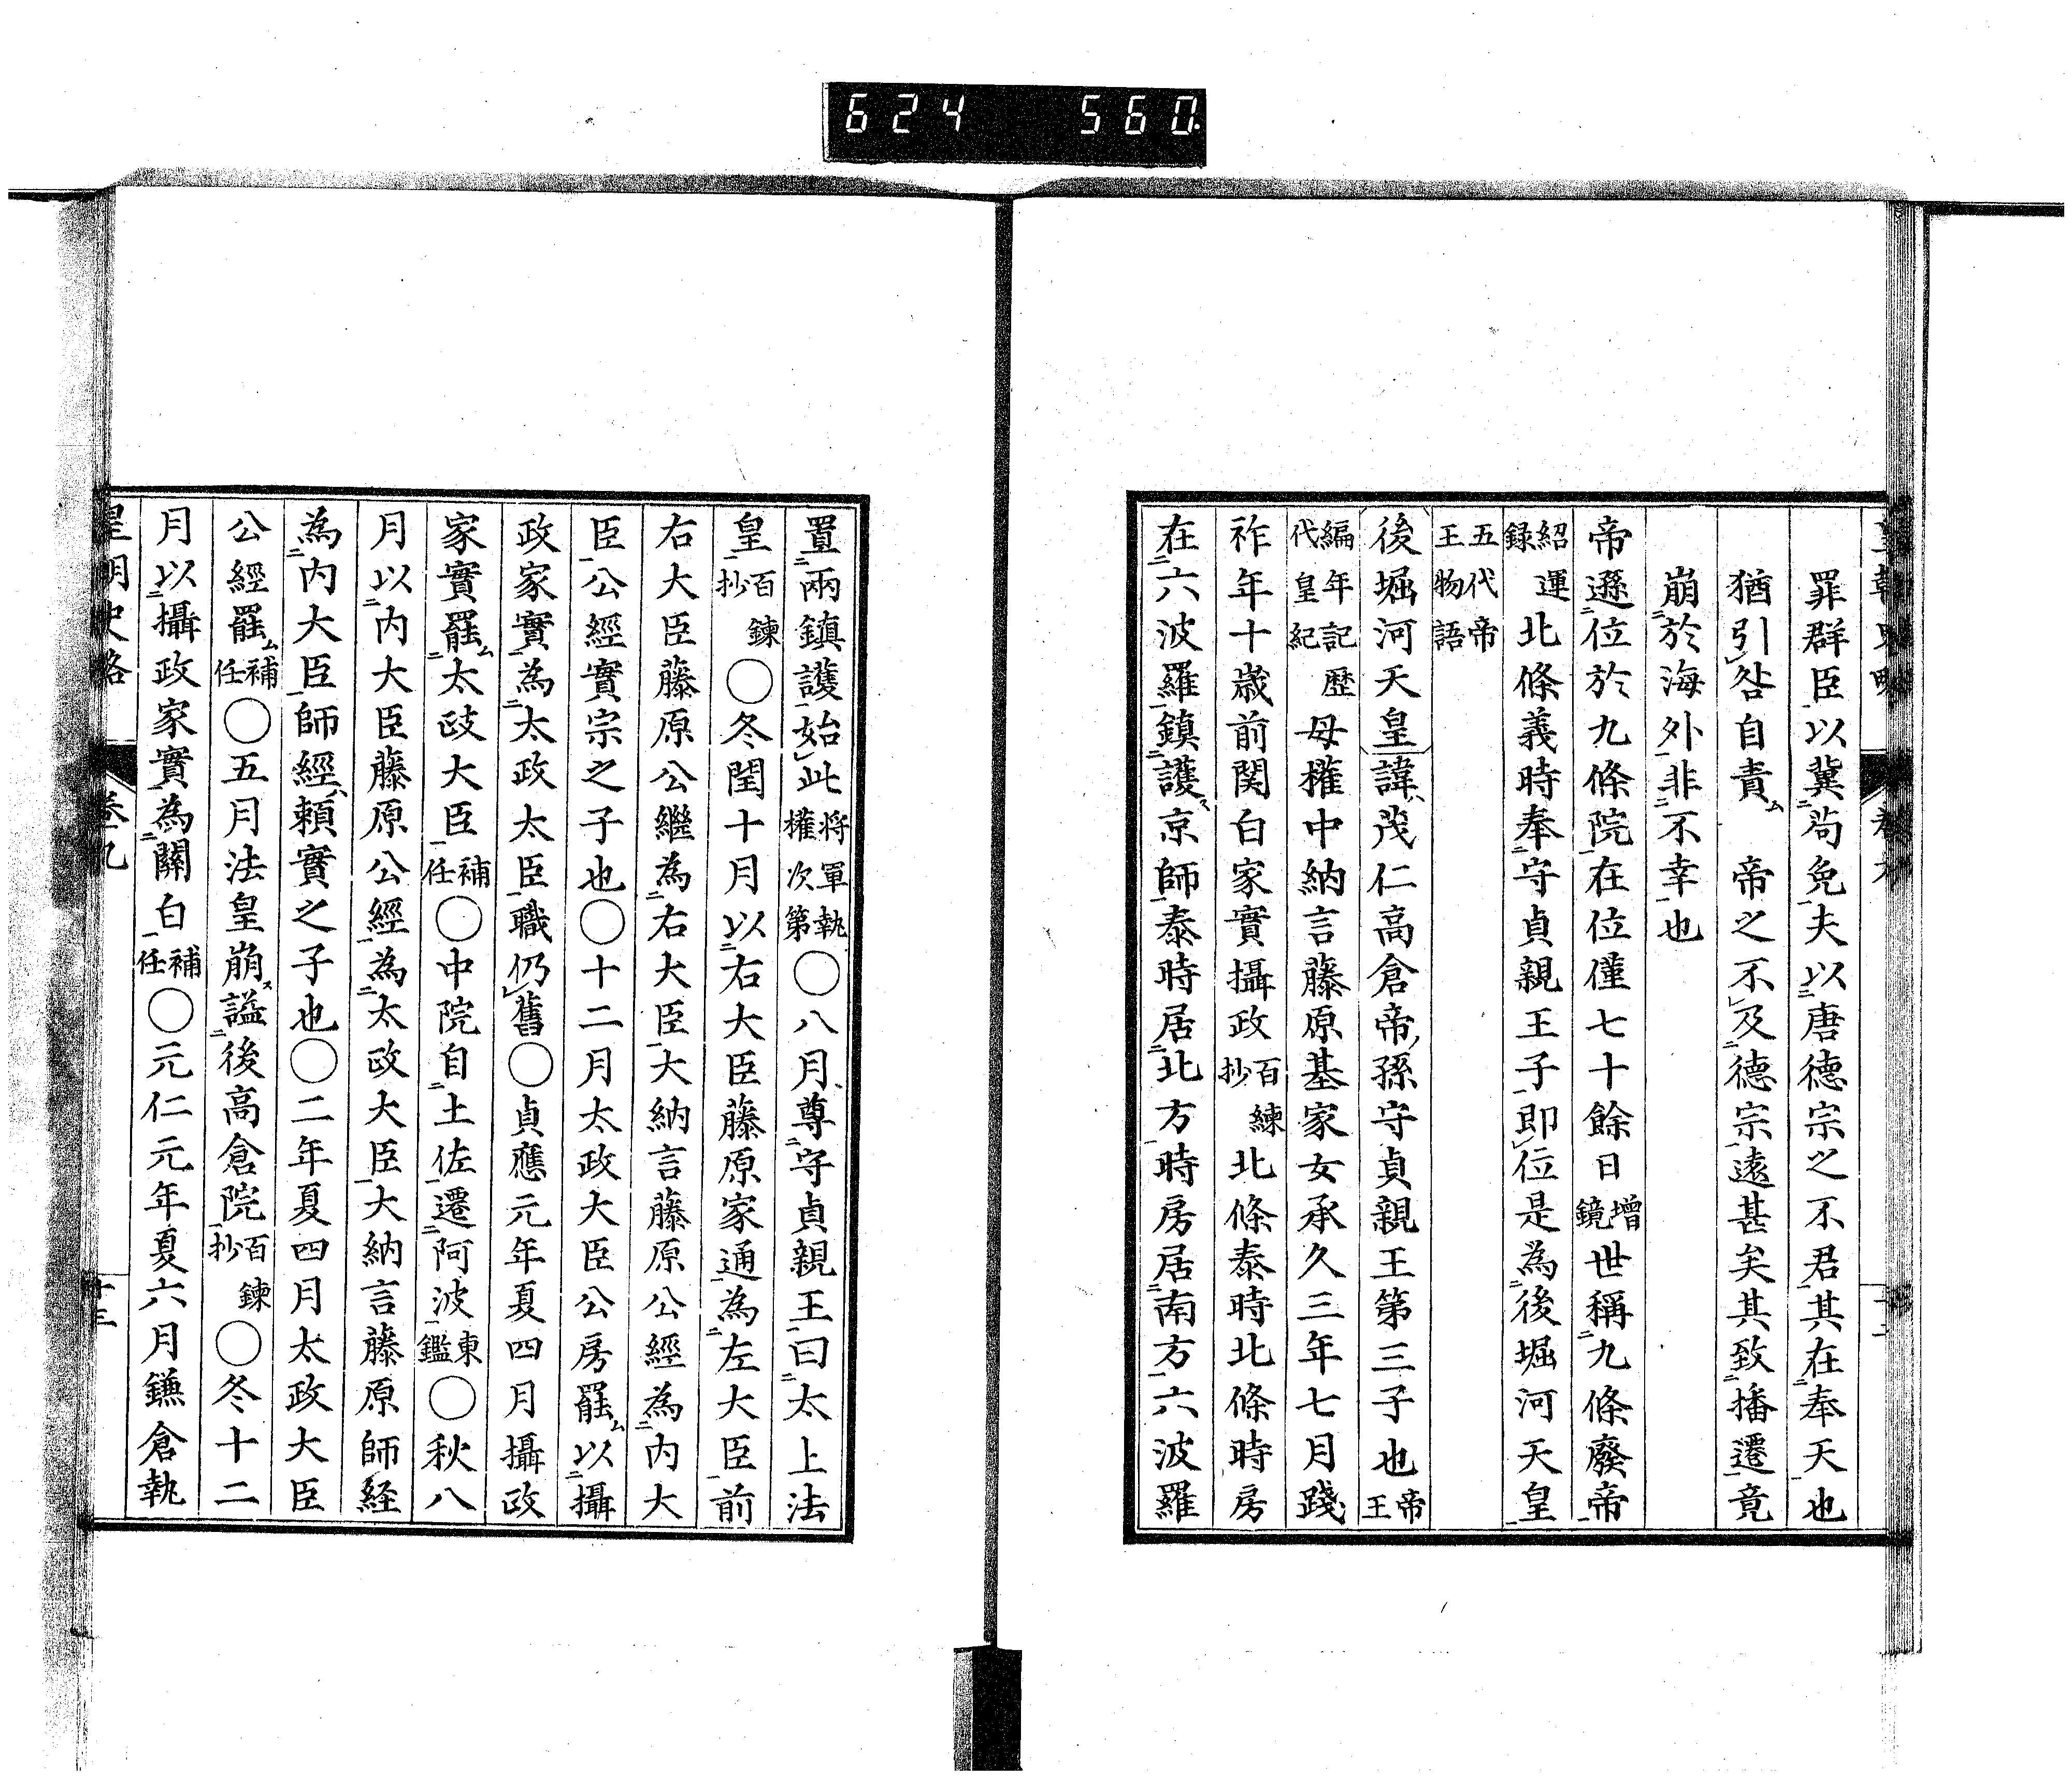 624 560
罪群臣以冀苟免夫以唐德宗之不君其在奉天也
猶引咎自責 帝之不及德宗遠甚矣其致播遷竟
崩於海外非不幸也
帝遜位於九條院在位僅七十餘日增鏡世稱九條廢帝
紹運錄北條義時奉守貞親王子即位是為後堀河天皇
五代帝王物語
後堀河天皇諱茂仁高倉帝孫守貞親王第三子也帝王
編年記歷代皇紀母權中納言藤原基家女承久三年七月踐
祚年十歲前関白家實攝政百練抄北條泰時北條時房
在六波羅鎮護京師泰時居北方時房居南方六波羅
置兩鎮護始此將軍執權次第○八月尊守貞親王曰太上法
皇百鍊抄○冬閏十月以右大臣藤原家通為左大臣前
右大臣藤原公繼為右大臣大納言藤原公經為內大
臣公經實宗之子也○十二月太政大臣公房罷以攝
政家實為太政大臣職仍舊○貞應元年夏四月攝政
家實罷太政大臣補任○中院自土佐遷阿波東鑑○秋八
月以內大臣藤原公經為太政大臣大納言藤原師経
為內大臣師經賴實之子也○二年夏四月太政大臣
公經罷補任○五月法皇崩謚後高倉院百鍊抄○冬十二
月以攝政家實為關白補任○元仁元年夏六月鎌倉執
皇朝史略 卷九 十三